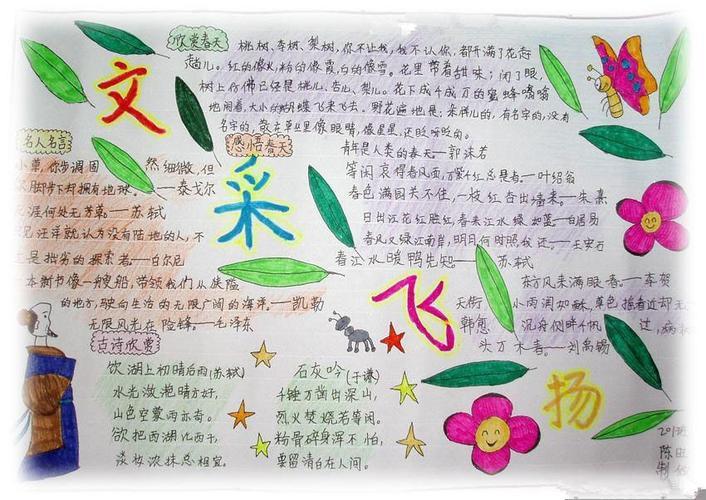 文采飞扬
欣赏春天
桃树、李树、梨树,你不让我,我不让你,都开满了花赶
趟儿。红的像火,粉的像霞,白的像雪。花里带着甜味;闭了眼,
树上仿佛已经是桃儿、杏儿、梨儿。花下成千成万的蜜蜂嗡嗡
地闹着,大小的蝴蝶飞来飞去。野花遍地是:杂样儿的,有名字的,没有
名字的,散在草丛里像眼睛,像星星,还眨呀眨的。
名人名言
小草,你步调固然细微,但
脚下却拥有地球。——泰戈尔
涯何处无芳草。——苏轼
见汪洋就认为没有陆地的人,不
是拙劣的探索者。——白尔尼
本新书像一艘船,带领我们从狭隘
的地方,驶向生活的无限广阔的海洋。——凯勒
无限风光在险锋。——毛泽东
感悟春天
青年是人类的春天——郭沫若
等闲
春色满园关不住,一枝红杏出墙来。——朱熹
日出江花红胜红,春来江水绿如蓝。——白居易
春风又绿江南岸,明月何时照我还。——王安石
春江水暖鸭先知。——苏轼
东方风来满眼春。——李贺
天街小雨润如酥,草色遥看近却无
韩愈
沉舟侧畔千帆过,病
头万木春。——刘禹锡
古诗欣赏
饮湖上初晴后雨(苏轼)
水光潋滟晴方好,
山色空蒙雨亦奇。
欲把西湖比西子,
淡妆浓抹总相宜。
石灰吟(于谦)
千锤万凿出深山,
烈火焚烧若等闲。
粉骨碎身浑不怕,
要留清白在人间。
201班
陈
制